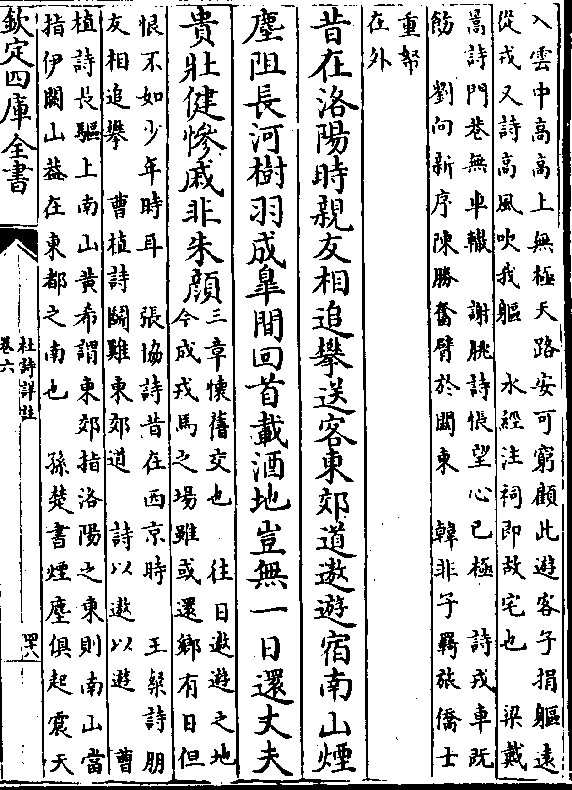 入雲中高高上無極天路安可窮顧此遊客子捐軀遠
從戎又詩高風吹我軀　水經注祠即故宅也　梁戴
暠詩門巷無車轍　謝朓詩悵望心已極　詩戎車既
飭　劉向新序陳勝奮臂於關東　韓非子羇旅僑士
重帑
在外
昔在洛陽時親友相追攀送客東郊道遨遊宿南山煙
塵阻長河樹羽成臯間回首載酒地豈無一日還丈夫
貴壯健慘戚非朱顔
三章懷舊交也　往日遨遊之地
今成戎馬之場雖或還鄉有日但
恨不如少年時耳　張協詩昔在西京時　王粲詩朋
友相追攀　曹植詩鬭雞東郊道　詩以遨以遊　曹
植詩長驅上南山黄希謂東郊指洛陽之東則南山當
指伊闕山葢在東都之南也　孫楚書煙塵俱起震天
欽定四庫全書
杜詩詳註
卷六
四十八